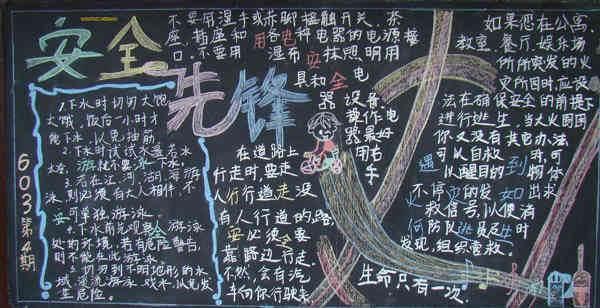 安全
先锋
603第4期
不要用湿手或赤脚接触开关、茶
座、插座和用各种电器的电源接
口。不要用湿布抹照明用
具和全电
器设备。
操作电
器最好
用右
手
如果您在公寓、
教室、餐厅、娱乐场
所所突发的火
灾所困时,应设
法在确保安全的前提下
进行逃生,当大火围困
你又没有其它办法
可以自救时,可
以醒目的物体
不停地发出求
救信号,以便消
防队员及时
发现,组织营救。
遇到
如何
1.下水时切勿太饱、
太饿,饭后一小时才
能下水,以免抽筋
2.下水时试试水温,若水
太冷,游就不要下水
3.若在江、河、湖、海游
泳,则必须有大人相伴,不
可单独游泳。
4.下水前先观察游泳
处的环境,若有危险警告,
则不能在此游泳。
5.切勿到不明地形的水
域、溪流游泳、戏水,以免发
生危险。
在道路上
行走时,要走
人行行道走没
有人行道的路,
必须要
靠路边行走。
不然,会自汽
车向你行驶来
生命只有一次